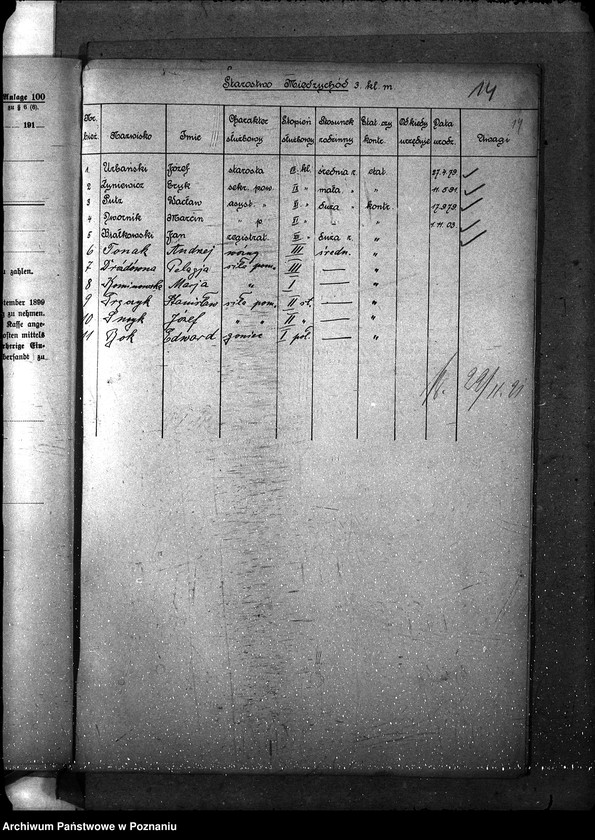 Anlage 100
zu § 6 (6).
191
zu zahlen.
tember 1899
g zu nehmen.
Kasse ange-
osten mittels
rherige Ein-
bersandt zu
Starostwo Międzychód 3. kl. m
14
14
Nr. bież. Nazwisko Imię Charakter służbowy Stopień służbowy Stosunek rodzinny Etat czy kontr. Od kiedy urzęduje Data urodz. Uwagi
1 Urbański Józef starosta kl. średnia r. etat. 27.4.79
2 Żyniewicz Eryk sekr. pow. IX " mała " " 11.5.91
3 Putz Wacław asyst. " duża " kontr. 17.9.79
4 Dwornik Marcin " p " " 1.11.03
5 Białkowski Jan registrat. duża r. "
6 Tonak Andrzej woźny III średn. "
7 Pelagja siła pom. III — "
8 Marja " I — "
9 Stanisław siła pom. II st. — "
10 Józef " " II " — "
11 Bok Edward goniec I poł. — "
29/11.21
Archiwum Państwowe w Poznaniu